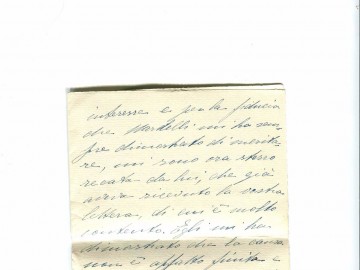 interesse e per la fiducia
che Martelli mi ha sem-
pre dimostrato di merita-
re, mi sono ora stesso
recata da lui, che già
aveva ricevuto la vostra
lettera, di cui è molto
contento. Egli mi ha
dimostrato che la causa
non è affatto finita e